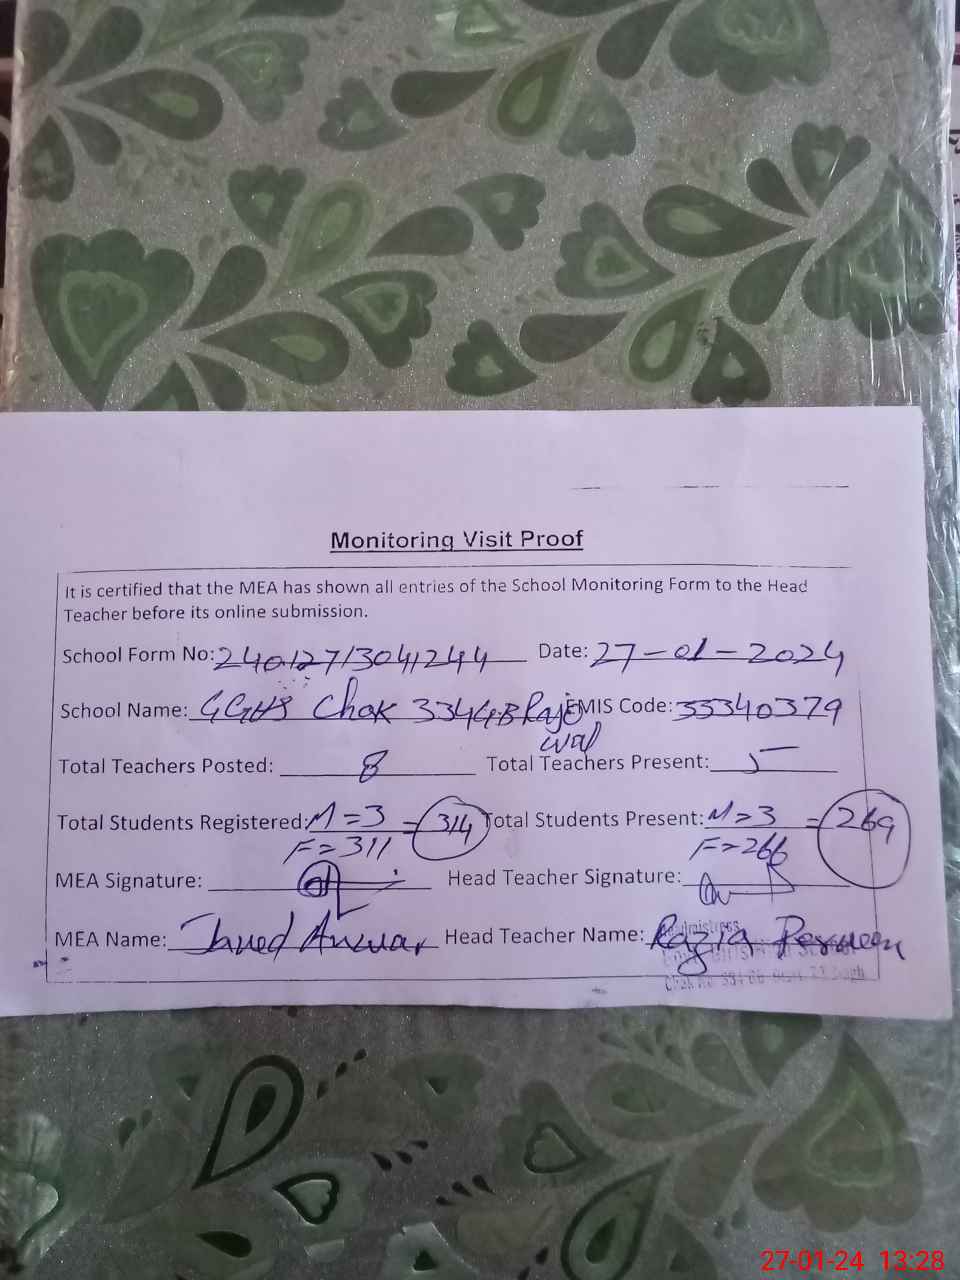 Monitoring Visit Proof
It is certified that the MEA has shown all entries of the School Monitoring Form to the Head
Teacher before its online submission.
School Form No: 240127/3041244 Date: 27-01-2024
School Name: GGHS Chak 334GB Rajo EMIS Code: 33340379
wal
Total Teachers Posted: 8 Total Teachers Present: 5
Total Students Registered: M=3 = 314 Total Students Present: M=3 = 269
F=311 F=266
MEA Signature: Head Teacher Signature:
MEA Name: Javed Anwar Head Teacher Name: Razia Perveen
27-01-24 13:28